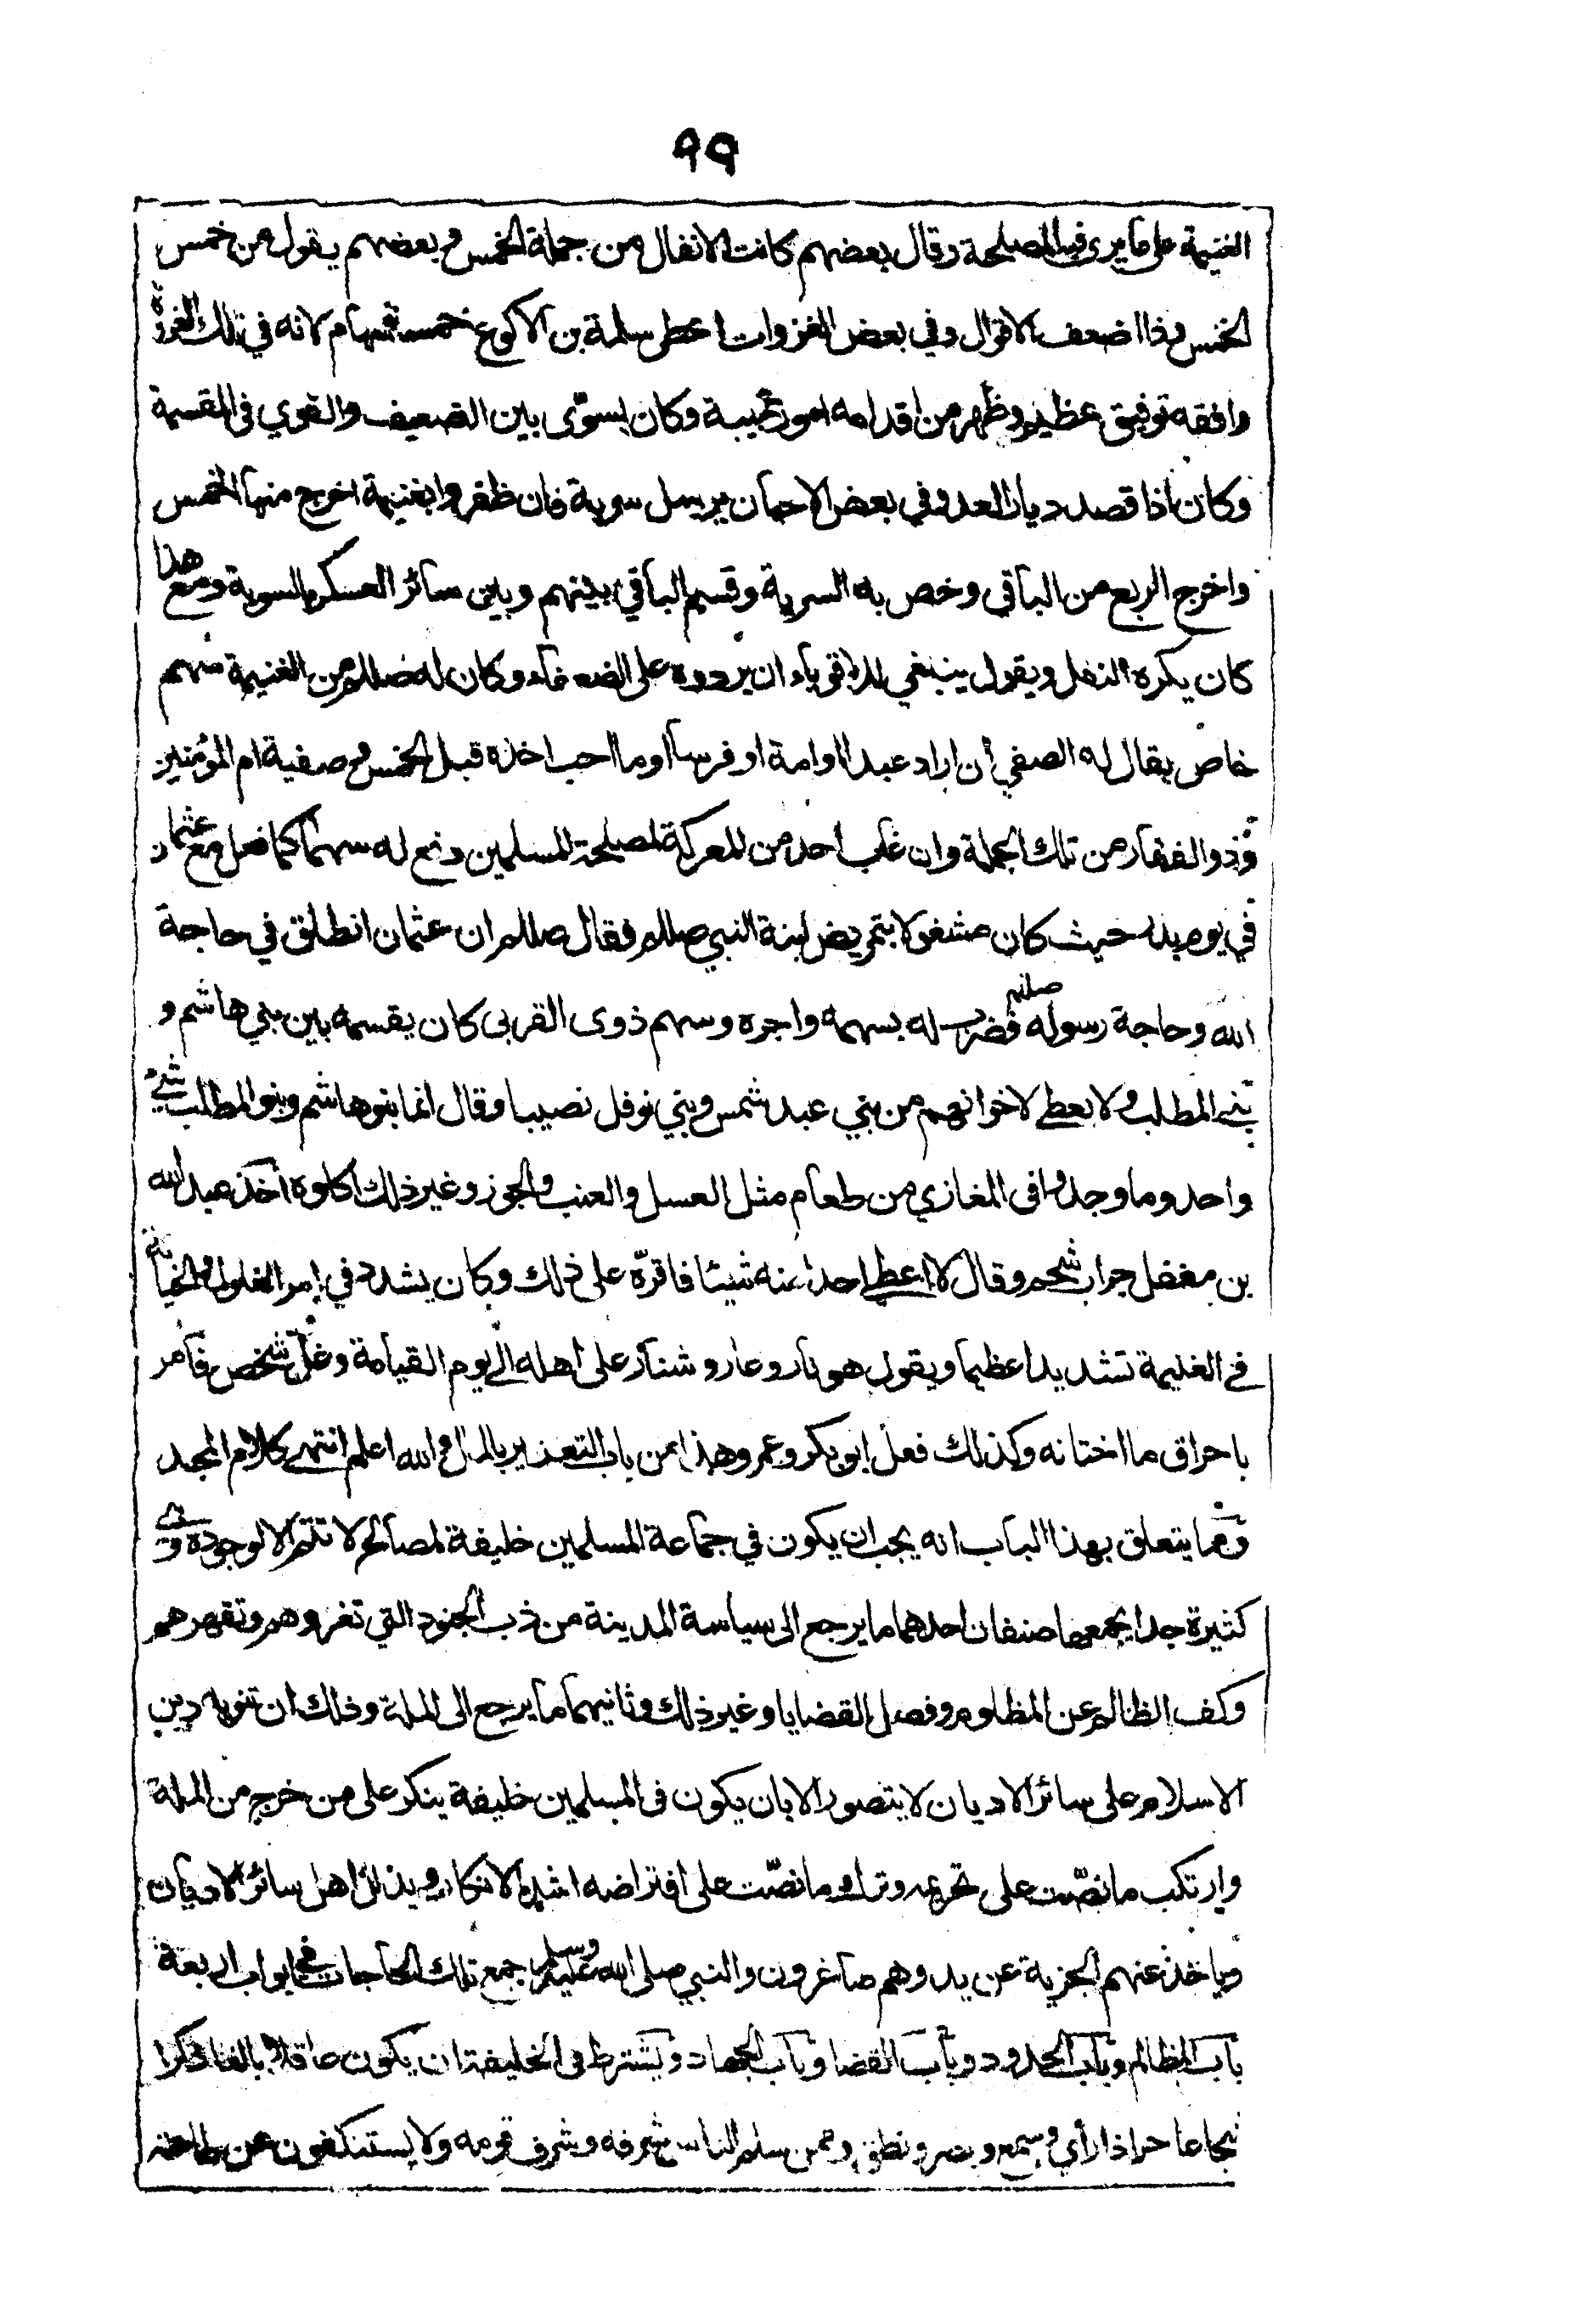 ٩٩
الغنيمة على ما يرى فيه المصلحة وقال بعضهم كانت الانفال من جملة الخمس وبعضهم يقول من خمس
الخمس وذا اضعف الاقوال وفي بعض الغزوات اعطى سلمة بن الاكوع خمسة سهام لانه في تلك الغزوة
وافقه توفيق عظيم وظهر من اقدامه امور عجيبة وكان يسوّى بين الضعيف والقوي في القسمة
وكان اذا قصد ديار العدو في بعض الاحيان يرسل سرية فان ظفروا بغنيمة اخرج منها الخمس
واخرج الربع من الباقي وخص به السرية وقسم الباقي بينهم وبين سائر العسكر بالسوية ومع هذا
كان يكره النفل ويقول ينبغي للاقوياء ان يردوه على الضعفاء وكان له صللم من الغنيمة سهم
خاص يقال له الصفي ان اراد عبدا او امة او فرسا او ما احب اخذه قبل الخمس وصفية ام المؤمنين
وذو الفقار من تلك الجملة وان غاب احد من المعركة لمصلحة المسلمين دفع له سهما كما فعل مع عثمان
في يوم بدر حيث كان مشغولا بتمريض ابنة النبي صللم فقال صللم ان عثمان انطلق في حاجة
الله وحاجة رسوله صللم فضرب له بسهمه واجره وسهم ذوى القربى كان يقسمه بين بني هاشم و
بني المطلب ولا يعطي لاخوانهم من بني عبد شمس وبني نوفل نصيبا وقال انما بنو هاشم وبنو المطلب شيء
واحد وما وجدوا في المغازي من طعام مثل العسل والعنب والجوز وغير ذلك اكلوه اخذ عبد الله
بن مغفل جراب شحم وقال لا اعطي احدا منه شيئا فاقرّه على ذلك وكان يشدد في امر الغلول والخيانة
في الغنيمة تشديدا عظيما ويقول هو نار وعار وشنار على اهله الى يوم القيامة وغلّ شخص فامر
باحراق ما اختانه وكذلك فعل ابو بكر وعمر وهذا من باب التعزير بالمال والله اعلم انتهى كلام المجد
ومما يتعلق بهذا الباب انه يجب ان يكون في جماعة المسلمين خليفة لمصالح لا تتم الا لوجوده وهي
كثيرة جدا يجمعها صنفان احدهما ما يرجع الى سياسة المدينة من ذب الجنود التي تغزوهم وتقهرهم
وكف الظالم عن المظلوم وفصل القضايا وغير ذلك وثانيهما ما يرجع الى الملة وذلك ان تنويه دين
الاسلام على سائر الاديان لا يتصور الا بان يكون في المسلمين خليفة ينكر على من خرج من الملة
وارتكب ما نصّت على تحريمه وترك ما نصّت على افتراضه اشد الانكار ويذلل اهل سائر الاديان
وياخذ عنهم الجزية عن يد وهم صاغرون والنبي صلى الله عليه وسلم جمع تلك الحاجات في ابواب اربعة
باب المظالم وباب الحدود وباب القضا وباب الجهاد ويشترط في الخليفة ان يكون عاقلا بالغا ذكرا
شجاعا حرا ذا رأي وسمع وبصر ونطق وممن سلم الناس شرفه وشرف قومه ولا يستنكفون عن طاعته